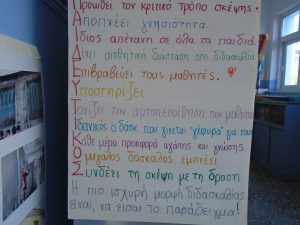 Προωθεί τον κριτικό τρόπο σκέψης.
Αποπνέει γνησιότητα.
Ίδιος απέναντι σε όλα τα παιδιά.
Δίνει αισθητική διάσταση στη διδασκαλία
Επιβραβεύει τους μαθητές.
Υποστηρίζει
Τονίζει την αυτοπεποίθηση των μαθητών
Ιδανικός ο δάσκ που γίνεται "γέφυρα" για τους
Κάθε μέρα προσφορά αγάπης και γνώσης
Ο μεγάλος δάσκαλος εμπνέει.
Συνδέει τη σκέψη με τη δράση
Η πιο ισχυρή μορφή διδασκαλίας
είναι, να είσαι το παράδειγμα!